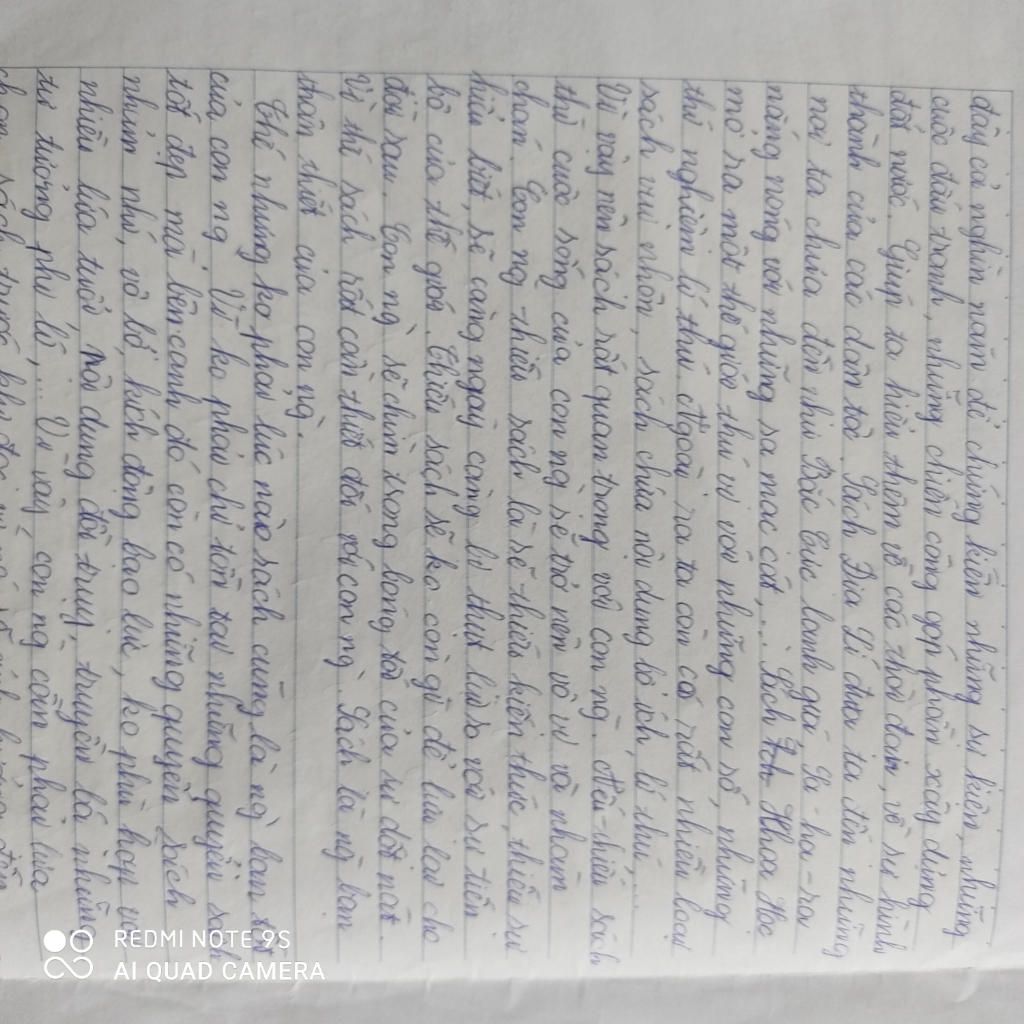 đây cả nghìn năm để chứng kiến những sự kiện, những
cuộc đấu tranh, những chiến công góp phần xây dựng
đất nước. Giúp ta hiểu thêm về các thời đại, về sự hình
thành của các dân tộc. Sách Địa Lí đưa ta đến những
nơi ta chưa đến như Bắc Cực lạnh giá, Sa-ha-ra
nắng nóng với những sa mạc cát,... Sách Hóa Học
mở ra một thế giới thú vị với những con số, những
thí nghiệm lí thú. Ngoài ra ta còn có rất nhiều loại
sách vui nhộn, sách chứa nội dung bổ ích, lí thú,...
Vì vậy nên sách rất quan trọng với con ng. Nếu thiếu sách
thì cuộc sống của con ng sẽ trở nên vô vị và nhàm
chán. Con ng thiếu sách là sẽ thiếu kiến thức, thiếu sự
hiểu biết, sẽ càng ngày càng bị thụt lùi so với sự tiến
bộ của thế giới. Thiếu sách sẽ ko còn gì để lưu lại cho
đời sau. Con ng sẽ chìm trong bóng tối của sự dốt nát.
Vì thế sách rất cần thiết đối với con ng. Sách là ng bạn
thân thiết của con ng.
Thế nhưng ko phải lúc nào sách cũng là ng bạn tốt
của con ng. Vì ko phải chỉ tồn tại những quyển sách
tốt đẹp mà bên cạnh đó còn có những quyển sách
nhảm nhí, vô bổ, kích động bạo lực, ko phù hợp với
nhiều lứa tuổi, nội dung đồi trụy, truyền bá những
tư tưởng phù lễ,... Vì vậy con ng cần phải lựa
chọn sách trước khi đọc
REDMI NOTE 9S
AI QUAD CAMERA